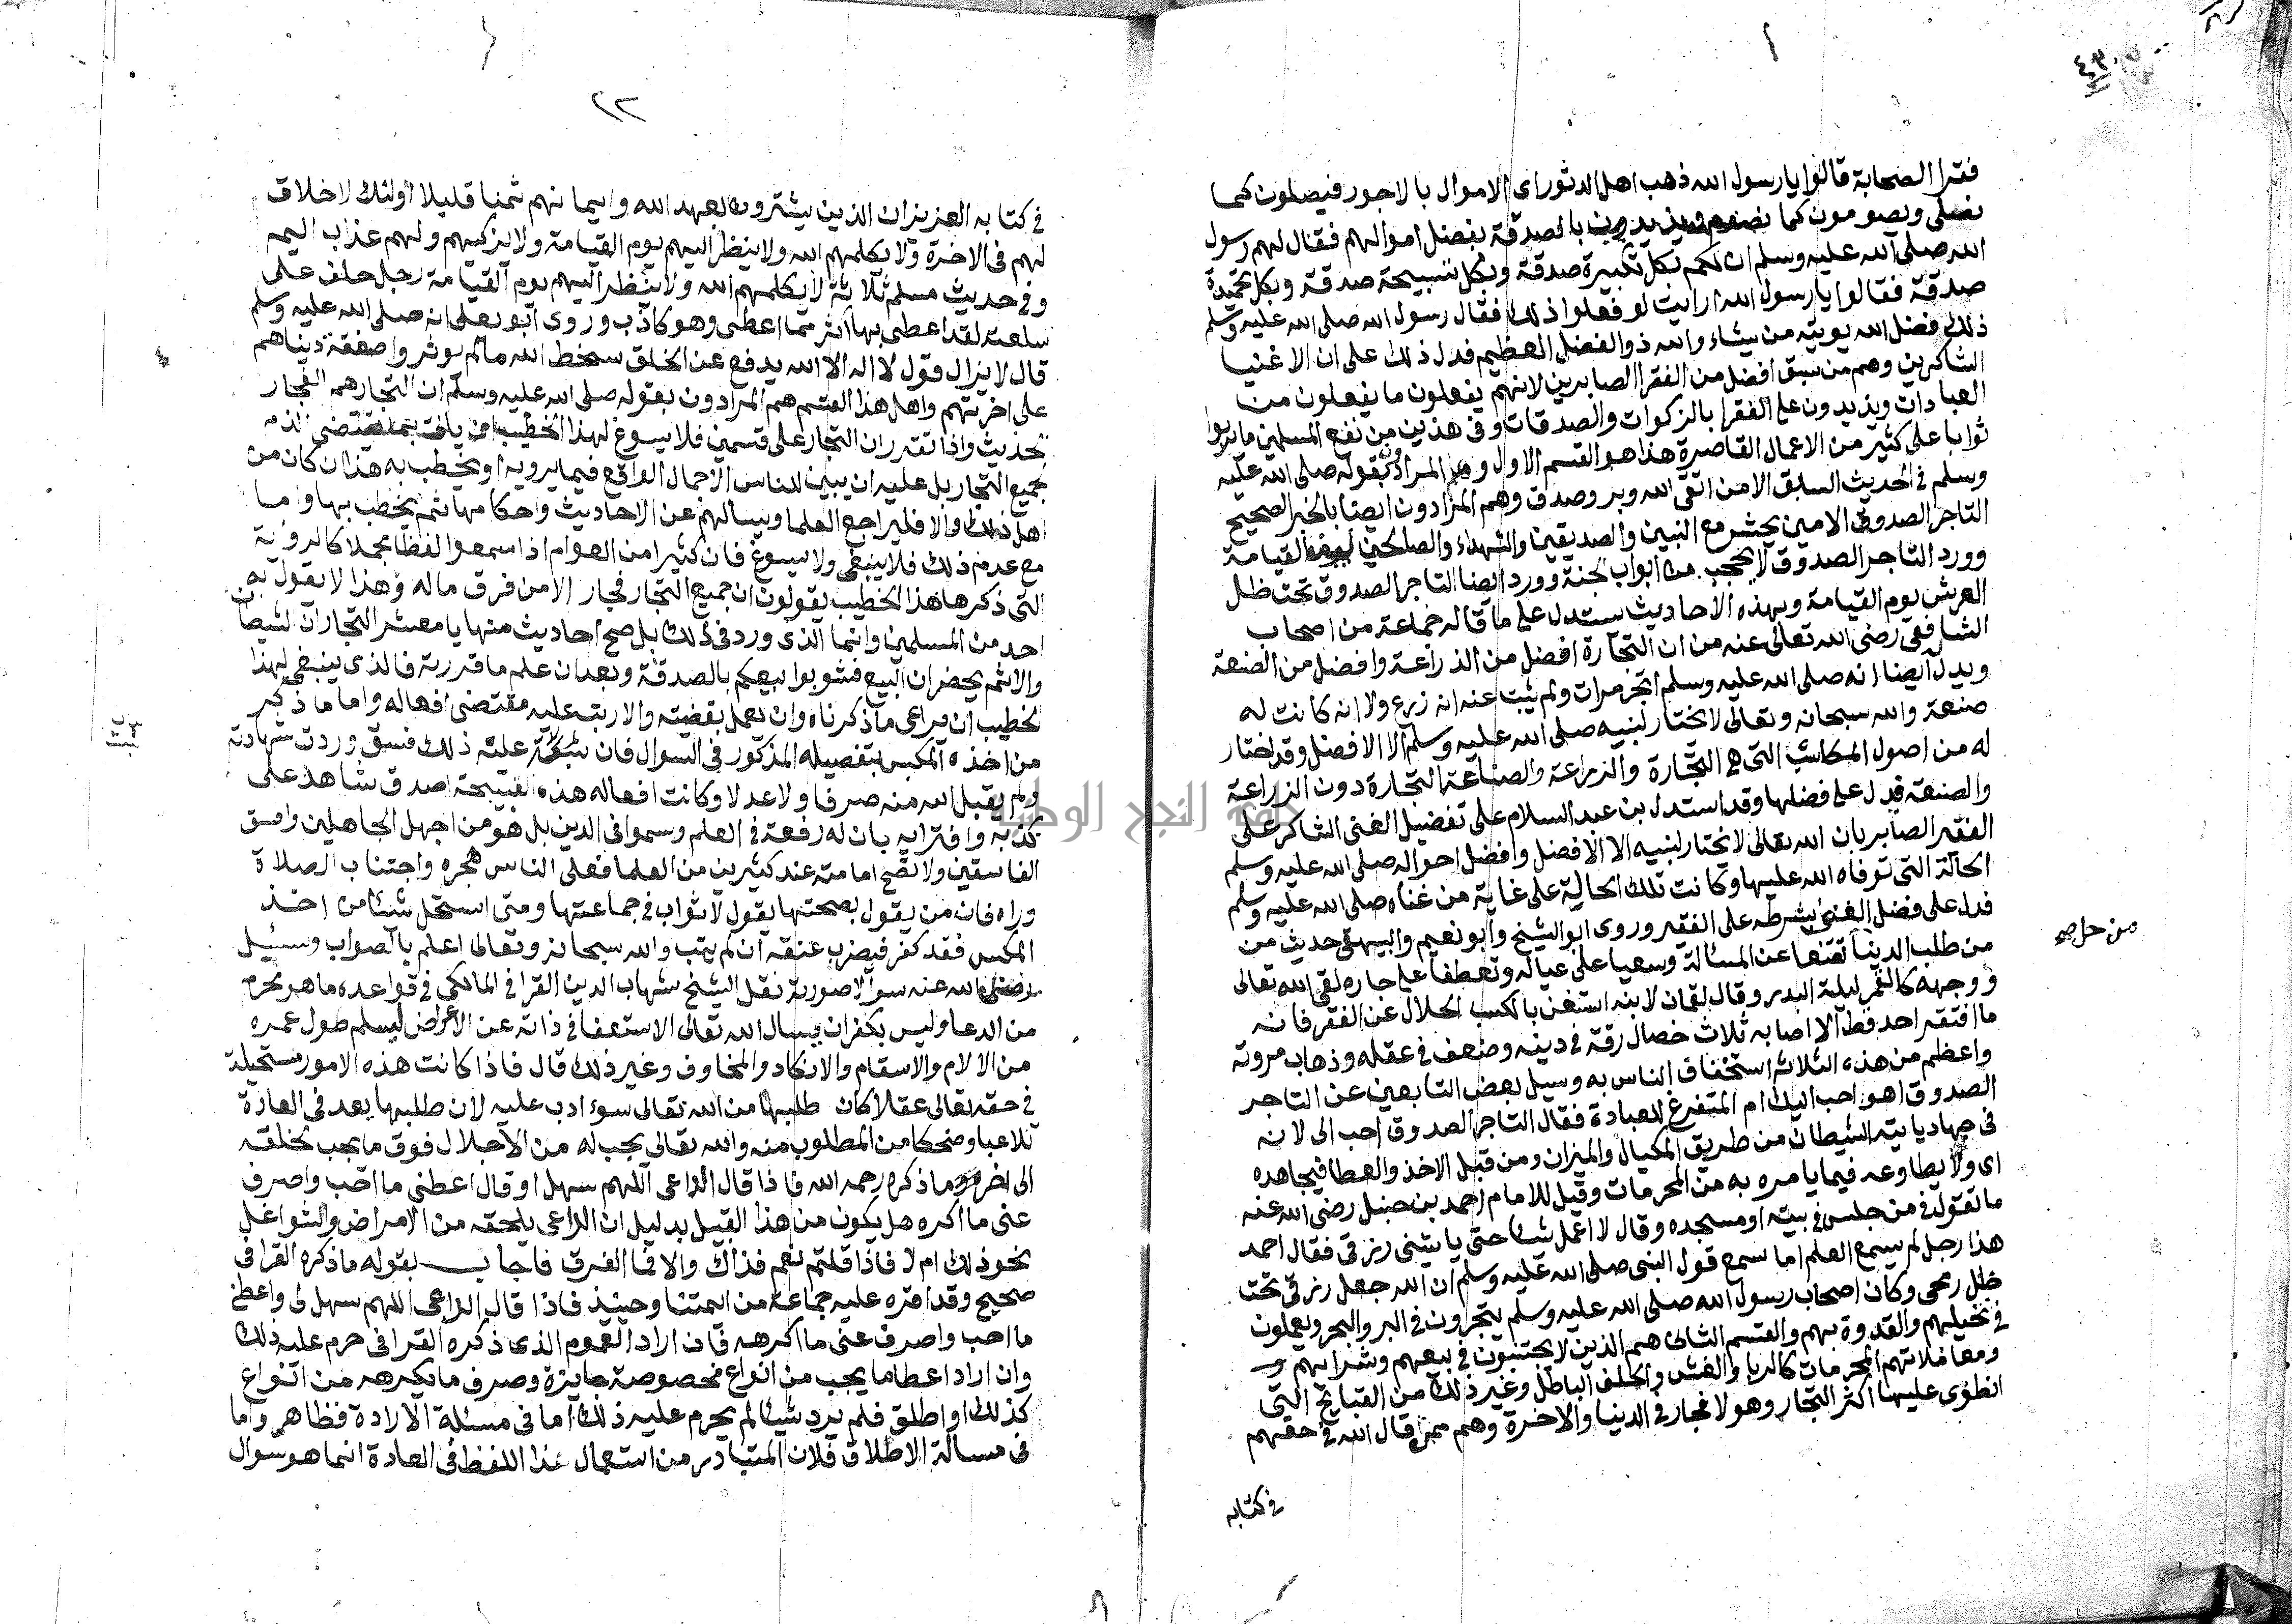 فقرا الصحابة قالوا يا رسول الله ذهب اهل الدثور اى الاموال بالاجور فيصلون كما
نصلى ويصومون كما نصوم ويزيدون بالصدقة بفضل اموالهم فقال لهم رسول
الله صلى الله عليه وسلم ان لكم بكل تكبيرة صدقة وبكل تسبيحة صدقة وبكل تحميدة
صدقة فقالوا يا رسول الله ارايت لو فعلوا ذلك فقال رسول الله صلى الله عليه وسلم
ذلك فضل الله يوتيه من يشاء والله ذو الفضل العظيم فدل ذلك على ان الاغنيا
الشاكرين وهم من سبق افضل من الفقرا الصابرين لانهم يفعلون ما يفعلون من
العبادات ويزيدون على الفقرا بالزكوات والصدقات وفى هذين من نفع المسلمين ما يربوا
ثوابا على كثير من الاعمال القاصرة هذا هو القسم الاول وهم المرادون بقوله صلى الله عليه
وسلم فى الحديث السابق الا من اتقى الله وبر وصدق وهم المرادون ايضا بالخبر الصحيح
التاجر الصدوق الامين يحشر مع النبين والصديقين والشهداء والصالحين يوم القيامة
وورد التاجر الصدوق لا يحجب من ابواب الجنة وورد ايضا التاجر الصدوق تحت ظل
العرش يوم القيامة وبهذه الاحاديث يستدل على ما قاله جماعة من اصحاب
الشافعى رضى الله تعالى عنه من ان التجارة افضل من الزراعة وافضل من الصنعة
ويدل ايضا انه صلى الله عليه وسلم اتجر مرات ولم يثبت عنه انه زرع ولا انه كانت له
صنعة والله سبحانه وتعالى لا يختار لنبيه صلى الله عليه وسلم الا الافضل وقد اختار
له من اصول المكاسب التى هى التجارة والزراعة والصناعة التجارة دون الزراعة
والصنعة فدل على فضلها وقد استدل بن عبد السلام على تفضيل الغنى الشاكر على
الفقير الصابر بان الله تعالى لا يختار لنبيه الا الافضل وافضل احواله صلى الله عليه وسلم
الحالة التى توفاه الله عليها وكانت تلك الحالة على غاية من غناه صلى الله عليه وسلم
فدل على فضل الغنى بشرطه على الفقير وروى ابو الشيخ وابو نعيم والبيهقى حديث من
من طلب الدنيا تعففا عن المسالة وسعيا على عياله وتعطفا على جاره لقى الله تعالى
ووجهه كالقمر ليلة البدر وقال لقمان لابنه استغن بالكسب الحلال عن الفقر فانه
ما افتقر احد قط الا اصابه ثلاث خصال رقة فى دينه وضعف فى عقله وذهاب مروته
واعظم من هذه الثلاث استخفاف الناس به وسيل بعض التابعين عن التاجر
الصدوق اهو احب اليك ام المتفرغ للعبادة فقال التاجر الصدوق احب الى لانه
فى جهاد ياتيه الشيطان من طريق المكيال والميزان ومن قبل الاخذ والعطا فيجاهده
اى ولا يطاوعه فيما يامره به من المحرمات وقيل للامام احمد بن حنبل رضى الله عنه
ما تقول فى من جلس فى بيته او مسجده وقال لا اعمل شيا حتى ياتينى رزقى فقال احمد
هذا رجل لم يسمع العلم اما سمع قول النبى صلى الله عليه وسلم ان الله جعل رزقى تحت
ظل رمحى وكان اصحاب رسول الله صلى الله عليه وسلم يتجرون فى البر والبحر ويعملون
فى نخيلهم والقدوة بهم والقسم الثانى هم الذين لا يجتنبون فى بيعهم وشرائهم
ومعاملاتهم المحرمات كالربا والغش والحلف الباطل وغير ذلك من القبائح التى
انطوى عليها اكثر التجار وهولا فجار فى الدنيا والاخرة وهم ممن قال الله فى حقهم
فى كتابه
٢٢
فى كتابه العزيز ان الذين يشترون بعهد الله وايمانهم ثمنا قليلا اولئك لا خلاق
لهم فى الاخرة ولا يكلمهم الله ولا ينظر اليهم يوم القيامة ولا يزكيهم ولهم عذاب اليم
وفى حديث مسلم ثلاثة لا يكلمهم الله ولا ينظر اليهم يوم القيامة رجل حلف على
سلعته لقد اعطى بها اكثر مما اعطى وهو كاذب وروى ابو يعلى انه صلى الله عليه وسلم
قال لا يزال قول لا اله الا الله يدفع عن الخلق سخط الله ما لم يوثروا صفقة دنياهم
على اخرتهم واهل هذا القسم هم المرادون بقوله صلى الله عليه وسلم ان التجار هم الفجار
الحديث واذا تقرر ان التجار على قسمين فلا يسوغ لهذا الخطيب ان ياتى بما يقتضى الذم
لجميع التجار بل عليه ان يبين للناس الاجمال الواقع فيما يرويه او يخطب به هذا ان كان من
اهل ذلك والا فليراجع العلما ويسالهم عن الاحاديث واحكامها ثم يخطب بها واما
مع عدم ذلك فلا ينبغى ولا يسوغ فان كثيرا من العوام اذا سمعوا لفظا مجملا كالرواية
التى ذكرها هذا الخطيب يقولون ان جميع التجار فجار الا من فرق ماله وهذا لا يقول به
احد من المسلمين وانما الذى ورد فى ذلك بل صح احاديث منها يا معشر التجار ان الشيطان
والاثم يحضران البيع فشوبوا بيعكم بالصدقة وبعد ان علم ما قررته فالذى ينبغى لهذا
الخطيب ان يراعى ما ذكرناه وان يعمل بقضيته والا رتب عليه مقتضى افعاله واما ما ذكر
من اخذه المكس بتفصيله المذكور فى السوال فان ثبت عليه ذلك فسق وردت شهادته
ولم يقبل الله منه صرفا ولا عدلا وكانت افعاله هذه القبيحة اصدق شاهد على
كذبه وافترايه بان له رفعة فى العلم وسموا فى الدين بل هو من اجهل الجاهلين وافسق
الفاسقين ولا تصح امامته عند كثيرين من العلما فعلى الناس هجره واجتناب الصلاة
وراه فان من يقول بصحتها يقول لا ثواب فى جماعتها ومتى استحل شيا من اخذ
المكس فقد كفر فيضرب عنقه ان لم يتب والله سبحانه وتعالى اعلم بالصواب وسئل
رضى الله عنه سوالا صورته نقل الشيخ شهاب الدين القرافى المالكى فى قواعده ما هو محرم
من الدعا وليس بكفر ان يسال الله تعالى الاستعفا فى ذاته عن الاعراض ليسلم طول عمره
من الالام والاسقام والانكاد والمخاوف وغير ذلك قال فاذا كانت هذه الامور مستحيلة
فى حقه تعالى عقلا كان طلبها من الله تعالى سوء ادب عليه لان طلبها يعد فى العادة
تلاعبا وضحكا من المطلوب منه والله تعالى يجب له من الاجلال فوق ما يجب لخلقه
الى اخر ما ذكره رحمه الله فاذا قال الداعى اللهم سهل او قال اعطنى ما احب واصرف
عنى ما اكره هل يكون من هذا القبيل بدليل ان الداعى يلحقه من الامراض والشواغل
نحو ذلك ام لا فاذا قلتم نعم فذاك والا فما الفرق فاجاب بقوله ما ذكره القرافى
صحيح وقد اقره عليه جماعة من ايمتنا وحينيذ فاذا قال الداعى اللهم سهل لى واعطنى
ما احب واصرف عنى ما اكرهه فان اراد العموم الذى ذكره القرافى حرم عليه ذلك
وان اراد اعطا ما يحب من انواع مخصوصة جايزة وصرف ما يكرهه من انواع
كذلك او اطلق فلم يرد شيا لم يحرم عليه ذلك اما فى مسئلة الارادة فظاهر واما
فى مسالة الاطلاق فلان المتبادر من استعمال هذا اللفظ فى العادة انما هو سوال